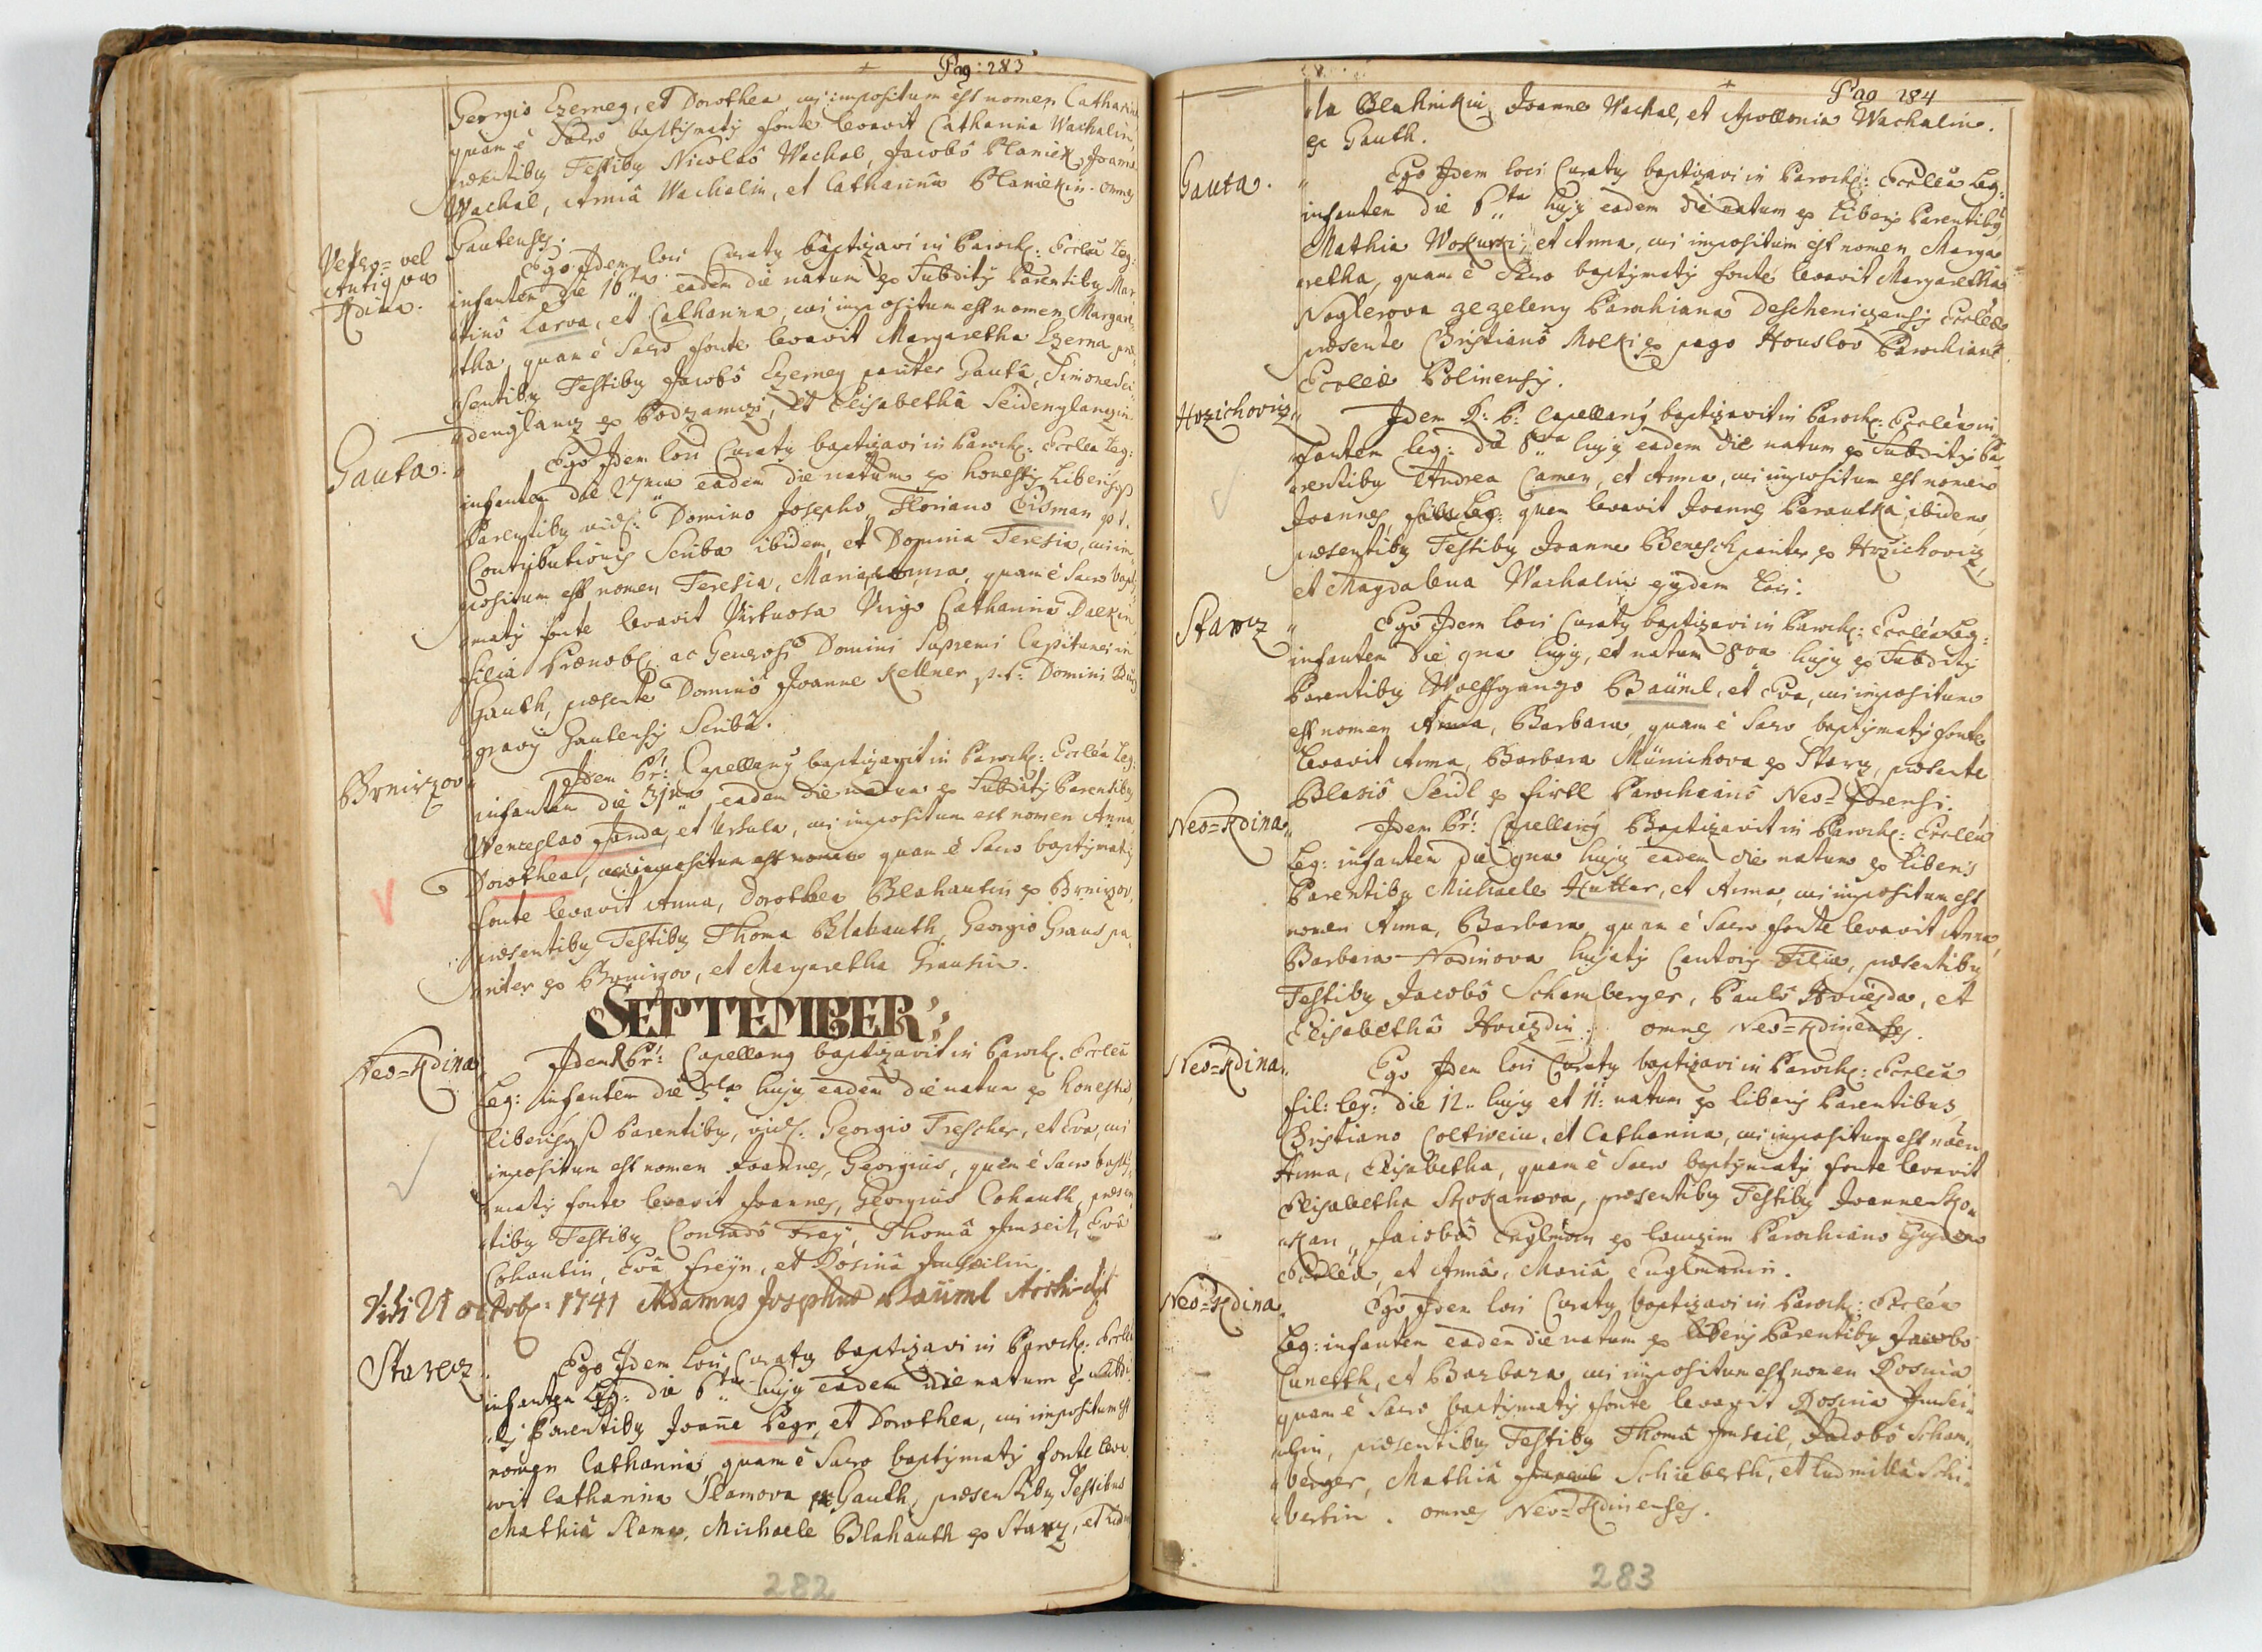 Pag: 283
Georgio Czerney, et Dorothea, cui impositum est nomen Catharina
quam è Sacro baptismatis fonte levavit Catharina Wachalin,
praesentibus Testibus Nicolaô Wachal, Jacobô Planiek, Joanne
Wachal, Anna Wachalin, et Catharinâ Planiekin. omnes
Gautenses.
Vetero= vel
Antiqua
Kdina.
Ego Idem loci Curatus baptizavi in Paroch: Ecclea Leg:
infantem die 16ta eadem die natum ex Subditis Parentibus Mar
tinô Karva, et Catharina, cui impositum est nomen Margare
tha, quam è Sacro fonte levavit Margaretha Czerna prae
sentibus Testibus Jacobô Czerney pariter Gautâ, Simone Sei
denglanz ex Podzamczi, et Elisabethâ Seidenglanzin.
Gauta.
Ego Idem loci Curatus baptizavi in Paroch: Ecclea Leg:
infantem die 27ma eadem die natum ex honestis Liberisqs
Parentibus vidl: Domino Josepho, Floriano Eisman p.t.
Contributionis Scriba ibidem, et Domina Teresia, cui im
positum est nomen Teresia, Maria Anna, quam è Sacro bapti
smatis fonte levavit Virtuosa Virgo Catharina
filia Praenob: ac Generosi Domini Supremi Capitanei in
Gauth, praesente Dominô Joanne Kellner p.t: Domini Bur
gravij Gautensis Scribâ.
Brnirzov
Idem Pr: Capellanus baptizavit in Paroch: Ecclea Leg:
infantem die 31ma eadem die natum ex Subditis Parentibus
Wenceslao Janda, et Ursula, cui impositum est nomen Anna
Dorothea, cui impositum est nomen quam è Sacro baptismatis
fonte levavit Anna, Dorothea Blahautin ex Brnirzov,
praesentibus Testibus Thoma Blahauth, Georgio Graus pa
riter ex Brnirzov, et Margaretha Grausin.
SEPTEMBER:
Neo=Kdina
Idem R Pr: Capellanus baptizavit in Paroch. Ecclea
Leg: infantem die 5ta hujus eadem die natum ex honestis,
liberisqs Parentibus, vidl. Georgio Trescher, et Eva, cui
impositum est nomen Joannes, Georgius, quem è Sacro bapti
smatis fonte levavit Joannes, Georgius Cohauth, praesen
tibus Testibus Conradô Frey, Thomâ Imseil, Evâ
Cohautin, Evâ Freyn, et Rosinâ Imseilin.
Vidi 21 octobr: 1741 Adamus Josephus Bäüml Archi-
Starecz.
Ego Idem loci Curatus baptizavi in Paroch: Ecclea
infantem Leg: die 6ta hujus eadem die natum ex subdi
tis Parentibus Joanne Pegr, et Dorothea, cui impositum est
nomen Catharina, quam è Sacro baptismatis fonte leva
vit Catharina Slamova ex Gauth, praesentibus Testibus
Mathiâ Slama, Michaele Blahauth ex Starz, et Lidmi
282
Pag 284
la Blahnikin, Joanne Wachal, et Apollonia Wachalin.
ex Gauth.
Gauta.
Ego Idem loci Curatus baptizavi in Paroch: Ecclea Leg:
infantem die 6ta hujus eadem die natum ex Liberis Parentibus
Mathia Wokurki, et Anna, cui impositum est nomen Marga
retha, quam è Sacro baptismatis fonte levavit Margaretha
Voglerova zezeleny Parochiana Descheniczensis Eccleae
praesente Christianô Molki ex pago Houslov Parochianô
Eccleae Polinensis.
Hrzichoviz
Idem R: P: Capellanus baptizavit in Paroch: Ecclea in
fantem leg: die 8va hujus eadem die natum ex Subditis Pa
rentibus Andrea Camen, et Anna, cui impositum est nomen
Joannes, filius leg: quem levavit Joannes Perautka ibidem,
praesentibus Testibus Joanne Benesch pariter ex Hrzichoviz,
et Magdalena Wachalin ejusdem loci.
Starz
Ego Idem loci Curatus baptizavi in Paroch: Ecclea Leg:
infantem die 9na hujus, et natum 8va hujus ex Subditis
Parentibus Wolffgango Baüml, et Eva, cui impositum
est nomen Anna, Barbara, quam è Sacro baptismatis fonte
levavit Anna, Barbara Münichova ex Starz, praesente
Blasiô Seidl ex Firtl Parochianô Neo=Forensi.
Neo=Kdina
Idem Pr: Capellanus Baptizavit in Paroch: Ecclea
Leg: infantem die 9na hujus eadem die natum ex Liberis
Parentibus Michaele Hutter, et Anna, cui impositum est
nomen Anna, Barbara, quam è Sacro fonte levavit Anna,
Barbara Nodinova hujatis Cantoris Filia, praesentibus
Testibus Jacobô Schamberger, Paulô Hwiezda, et
Elisabethâ Hwiezdin. omnes Neo=Kdinenses.
Neo=Kdina.
Ego Idem loci Curatus baptizavi in Paroch: Ecclea
fil: leg: die 12. hujus et 11: natum ex liberis Parentibus
Christiano Coltwein, et Catharina, cui impositum est noen
Anna, Elisabetha, quam è Sacro baptismatis fonte levavit
Elisabetha Skokanova, praesentibus Testibus Joanne Sko
kan, Jacobô Englmon ex Lauzim Parochiano Ejusdem
Ecclea, et Annâ, Mariâ Englmanin.
Neo=Kdina.
Ego Idem loci Curatus baptizavi in Paroch: Ecclea
Leg: infantem eadem die natum ex liberis Parentibus Jacobo
Cuneth, et Barbara, cui impositum est nomen Rosina,
quam è Sacro baptismatis fonte levavit Rosina Imsei
lin, praesentibus Testibus Thomâ Imseil, Jacobô Scham
berger, Mathiâ Schieberth, et Ludmillâ Schi
bertin. omnes Neo=Kdinenses.
283